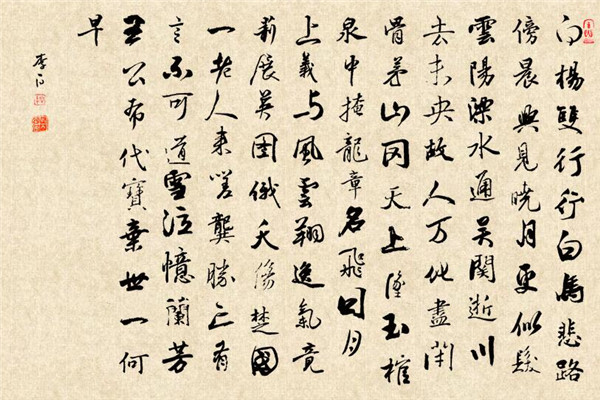 白楊雙行行白馬悲路
傍晨興見曉月更似髮
雲陽溧水通吳關逝川
去未央故人万化盡閉
骨茅山冈天上墜玉棺
泉中掩龍章名飛日月
上義与風雲翔逸氣竟
莉展英图俄夭傷楚國
一老人来嗟龔勝亡有
言不可道雪泣憶蘭芳
王公希代寶棄世一何
早
李白